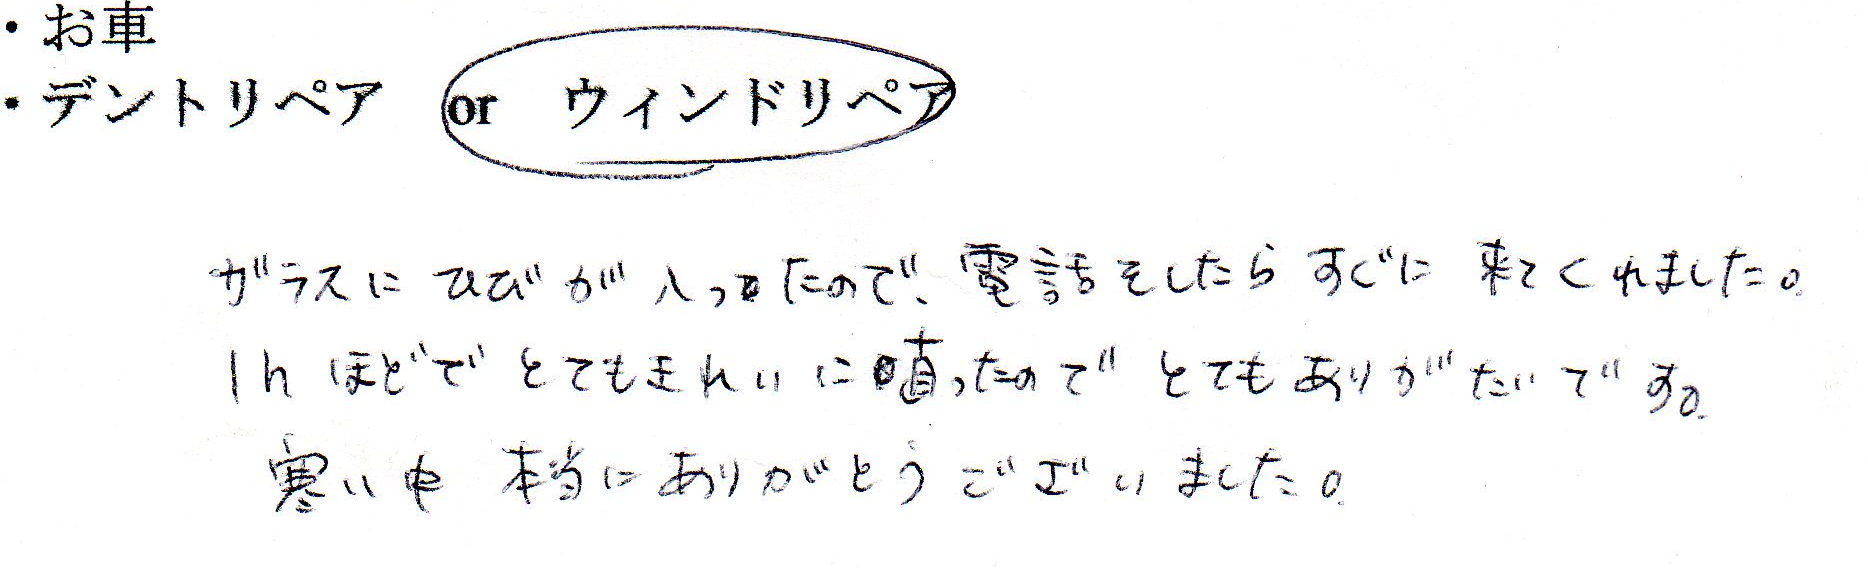 ・お車
・デントリペア or ウィンドリペア
ガラスにひびが入ったので、電話をしたらすぐに来てくれました。
1hほどでとてもきれいに直ったのでとてもありがたいです。
寒い中 本当にありがとうございました。